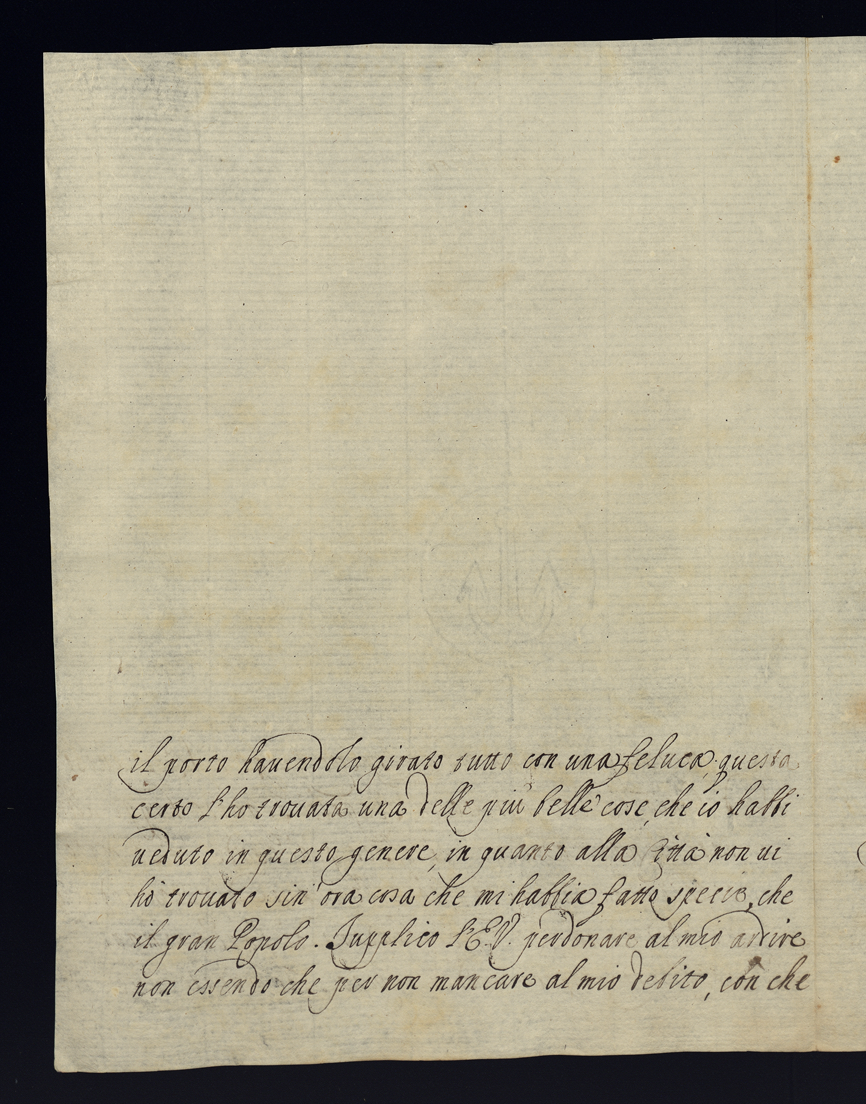 il porto havendolo girato tutto con una feluca, questa
certo l'ho trovata una delle più belle cose, che io habbi
veduto in questo genere, in quanto alla Città non vi
hò trovato sin'ora cosa che mi habbia fatto specie, che
il gran Popolo. Supplico l'E.V. perdonare al mio ardire
non essendo che per non mancare al mio debito, con che